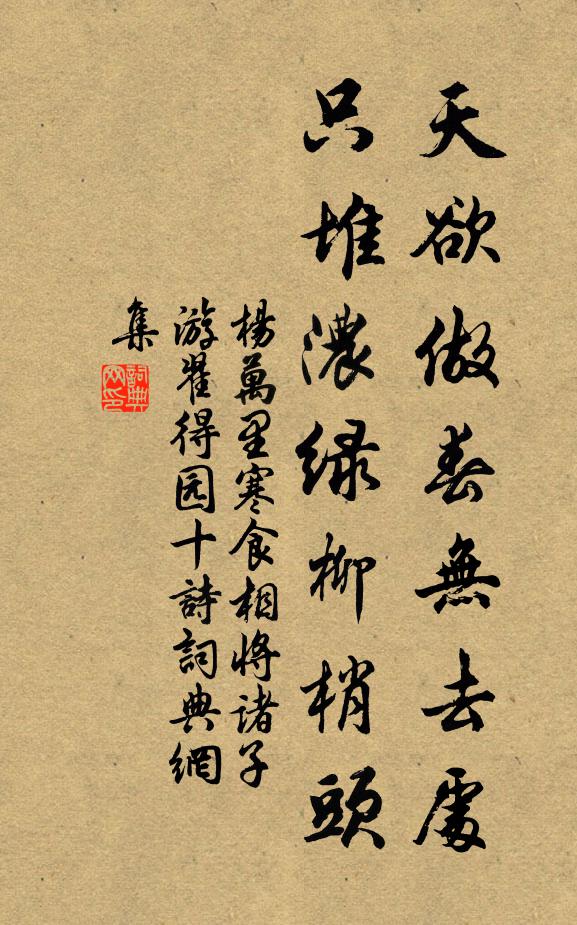 天欲做春無去處
只堆濃綠柳梢頭
楊萬里寒食相將諸子
游翟得园十詩詞典網
集
詞典網印